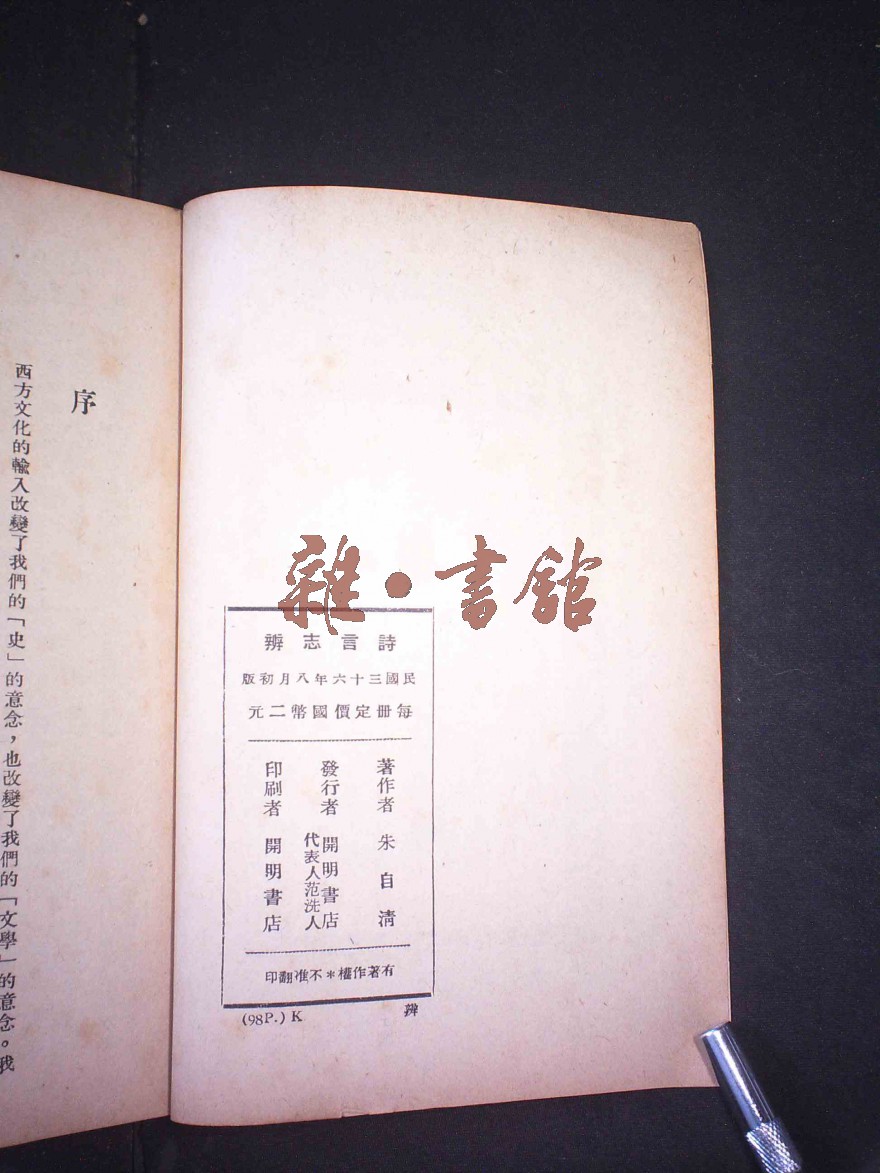 詩言志辨
民國三十六年八月初版
每册定價國幣二元
著作者 朱自清
發行者 開明書店
代表人范洗人
印刷者 開明書店
有著作權*不准翻印
(98P.) K
辨
序
西方文化的輸入改變了我們的「史」的意念，也改變了我們的「文學」的意念。我
雜·書館